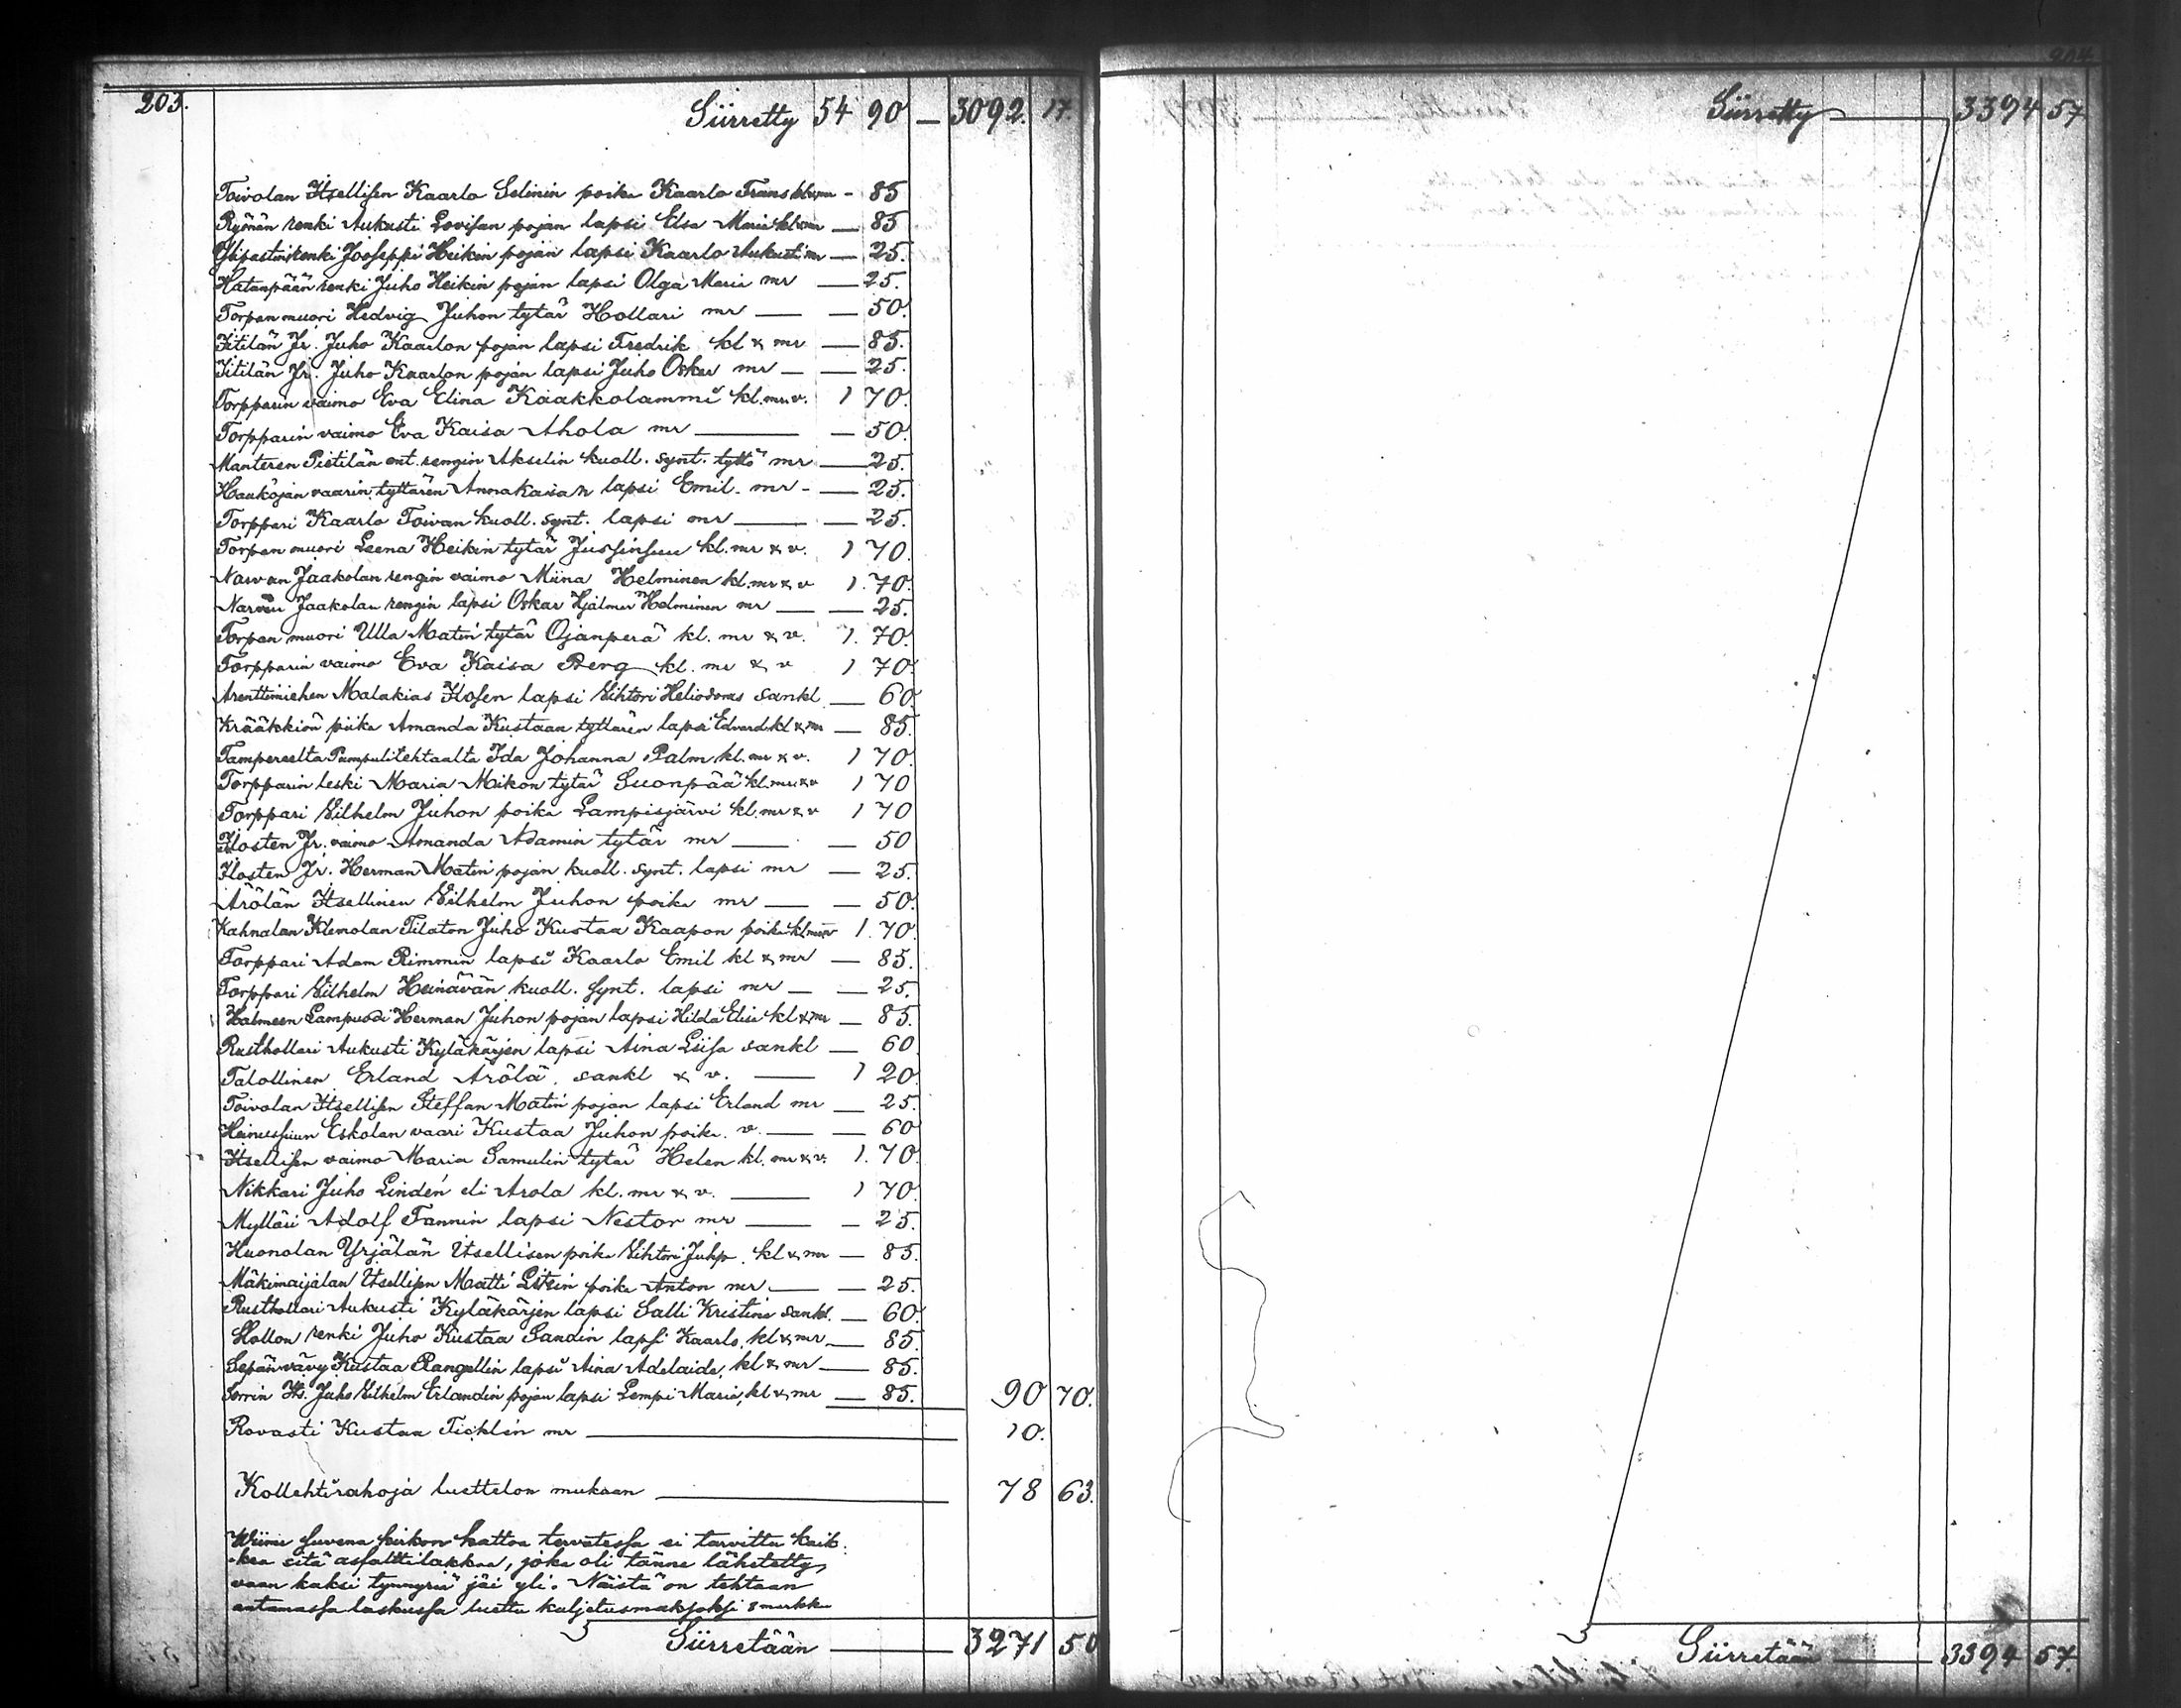 203.
Siirretty 54 90 — 3092. 17.
Toivolan Itsellisen Kaarlo Selinin poika Kaarlo Frans kl & mr - 85
Ryönän renki Aukusti Lovisan pojan lapsi Elsa Maria kl & mr — 85
Ylipastin renki Jooseppi Heikin pojan lapsi Kaarlo Aukusti mr — 25.
Hatanpään renki Juho Heikin pojan lapsi Olga Maria mr — 25.
Torpan muori Hedvig Juhon tytär Hollari mr — — 50.
Iitilän Jr. Juho Kaarlon pojan lapsi Fredrik kl & mr — 85.
Iitilän Jr. Juho Kaarlon pojan lapsi Juho Oskar mr — — 25.
Torpparin vaimo Eva Elina Kaakkolammi kl. mr. v. 1 70.
Torpparin vaimo Eva Kaisa Ahola mr — — 50.
Manteren Pietilän ent. rengin Akselin kuoll. synt. tyttö mr — 25.
Haukojan vaarin tyttären Annakaisan lapsi Emil. mr - — 25.
Torppari Kaarlo Toivan kuoll. synt. lapsi mr — — 25.
Torpan muori Leena Heikin tytär Jussinsuu kl. mr & v. 1 70.
Narvan Jaakolan rengin vaimo Miina Helminen kl. mr & v 1. 70.
Narvan Jaakolan rengin lapsi Oskar Hjalmar Helminen mr — — 25.
Torpan muori Ulla Matin tytär Ojanperä kl. mr & v. 1. 70.
Torpparin vaimo Eva Kaisa Berg kl. mr & v 1 70.
Arenttimiehen Malakias Ilosen lapsi Vihtori Heliodorus sankl — 60.
Krääkkiön piika Amanda Kustaan tyttären lapsi Edvard kl & mr — 85.
Tampereelta Pumpulitehtaalta Ida Johanna Palm kl. mr & v. 1 70.
Torpparin leski Maria Mikon tytär Suonpää kl. mr & v 1 70
Torppari Vilhelm Juhon poika Lampisjärvi kl. mr & v 1 70
Ilosten Jr. vaimo Amanda Adamin tytär mr — — 50
Ilosten Jr. Herman Matin pojan kuoll. synt. lapsi mr — 25.
Arölän Itsellinen Vilhelm Juhon poika mr — — 50.
Kahnalan Klemolan Tilaton Juho Kustaa Kaapon poika kl. mr & v 1. 70.
Torppari Adam Rimmin lapsi Kaarlo Emil kl & mr — 85.
Torppari Vilhelm Heinävän kuoll. synt. lapsi mr — — 25.
Halmeen Lampuodi Herman Juhon pojan lapsi Hilda Elisa kl & mr — 85.
Rusthollari Aukusti Kyläkärjen lapsi Aina Liisa sankl — 60
Talollinen Erland Arölä. sankl & v. — 1 20.
Toivolan Itsellisen Steffan Matin pojan lapsi Erland mr — 25.
Heinussuun Eskolan vaari Kustaa Juhon poika. v. — — 60
Itsellisen vaimo Maria Samulin tytär Helen kl. mr & v. 1. 70.
Nikkari Juho Lindén eli Arola kl. mr & v. — 1 70.
Mylläri Adolf Tannin lapsi Nestor mr — — 25.
Huonolan Yrjälän itsellisen poika Vihtori Juho. kl & mr — 85.
Mäkimaijalan Itsellisen Matti Litsin poika Anton mr. — — 25.
Rusthollari Aukusti Kyläkärjen lapsi Salli Kristiina sankl. — 60.
Hollon renki Juho Kustaa Sandin lapsi Kaarlo. kl & mr — 85.
Sepän vävy Kustaa Rangellin lapsi Aina Adelaide. kl & mr — 85.
Sorrin Its. Juho Vilhelm Erlandin pojan lapsi Lempi Maria, kl & mr — 85. 90 70.
Rovasti Kustaa Ticklén mr — 10.
Kollehtirahoja luettelon mukaan — 78 63.
Wiime suvena kirkon kattoa tervatessa ei tarvittu kaik-
kea sitä asfalttilakkaa, joka oli tänne lähetetty,
vaan kaksi tynnyriä jäi yli. Näistä on tehtaan
antamassa laskussa luettu kuljetusmaksoksi 8 markkaa
Siirretään — 3271 50
204
Siirretty — 3394 57
Siirretään — 3394 57.